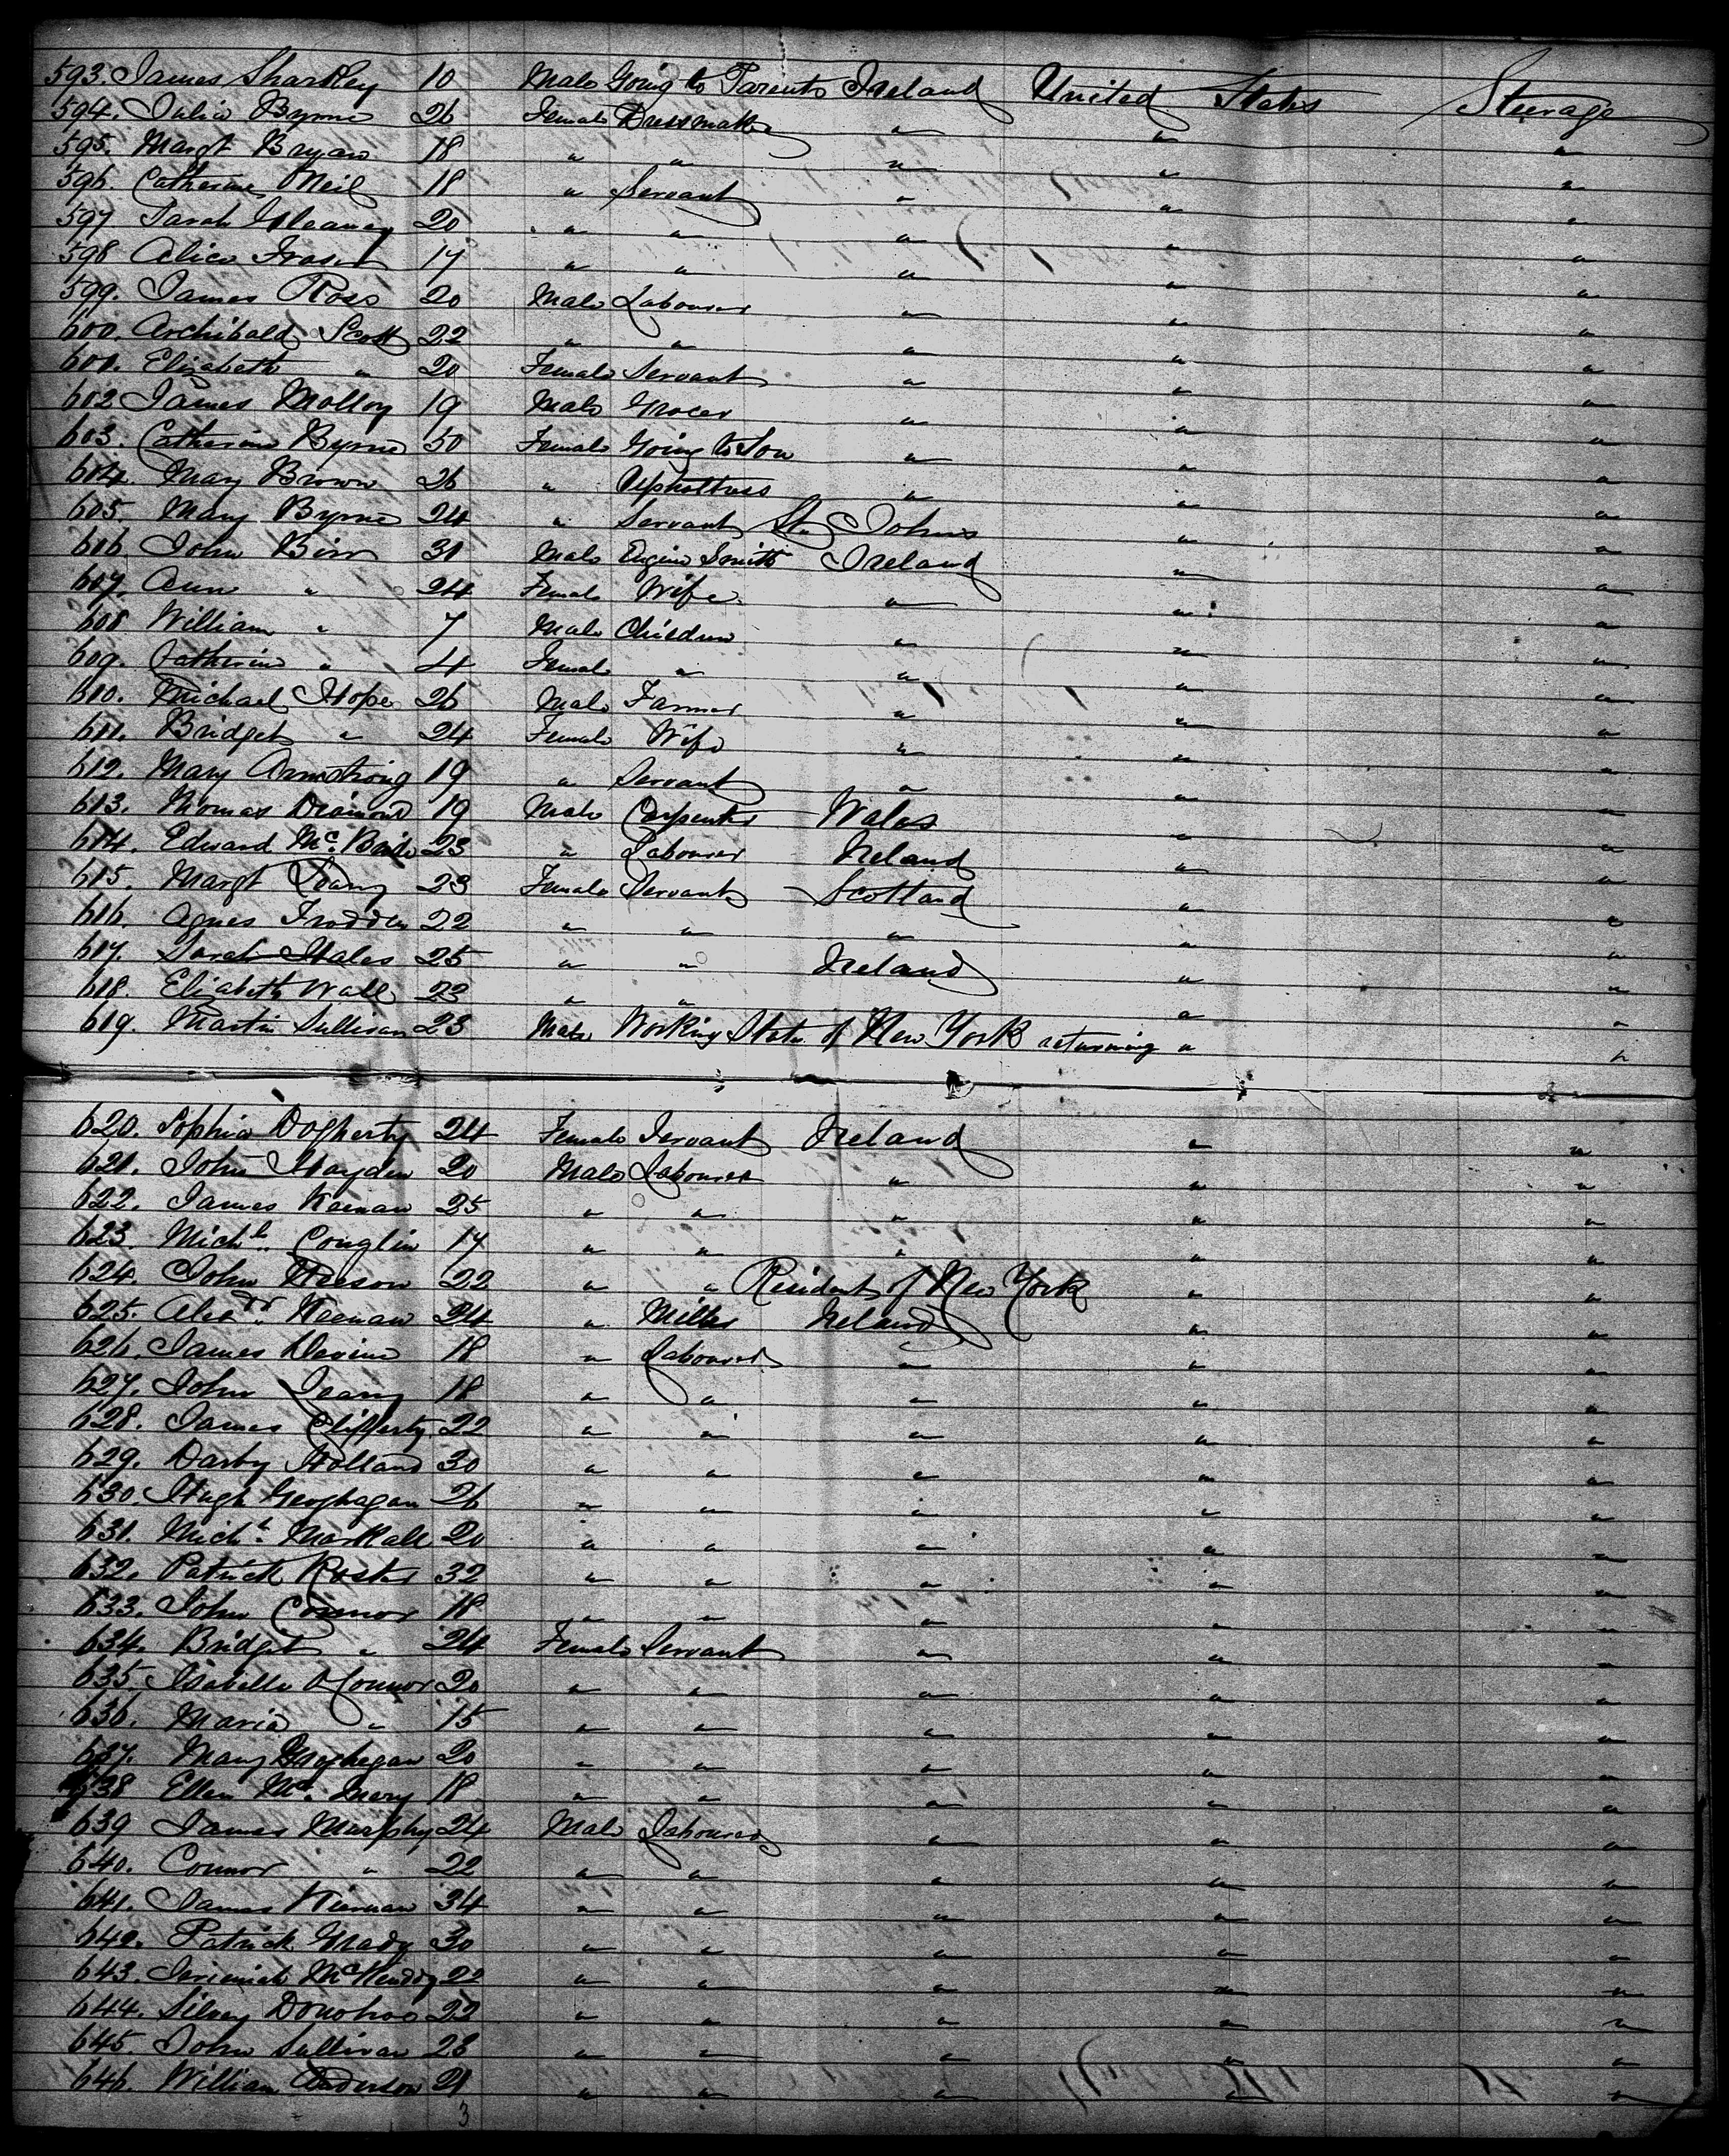 593. James Sharkey 10 Male Going to Parents Ireland United States Steerage
594. Julia Byrne 26 Female Dressmaker " " "
595. Margt Bryan 18 " " " " "
596. Catherine Neil 18 " Servant " " "
597 Sarah 20 " " " " "
598 Alice Fraser 17 " " " " "
599. James Ross 20 Male Labourer " " "
600. Archibald Scott 22 " " " " "
601. Elizabeth " 20 Female Servant " " "
602 James Molloy 19 Male Grocer " " "
603. Catherine Byrne 50 Female Going to Son " " "
604. Mary Brown 26 " " " "
605. Mary Byrne 24 " Servant St. Johns " "
606 John Birr 31 Male Engine Smith Ireland " "
607. Ann " 24 Female Wife " " "
608 William " 7 Male Children " " "
609. Catherine " 4 Female " " " "
610. Michael Hope 26 Male Farmer " " "
611. Bridget " 24 Female Wife " " "
612. Mary Armstrong 19 " Servant " " "
613. Thomas Diamond 19 Male Carpenter Wales " "
614. Edward 23 " Labourer Ireland " "
615. Margt Leary 23 Female Servant Scotland " "
616. Agnes Frodden 22 " " " " "
617. Sarah Hales 25 " " Ireland " "
618. Elizabeth Wall 22 " " " "
619. Martin Sullivan 23 Male Working State of New York returning " "
620. Sophia Dogherty 24 Female Servant Ireland " "
621. John Hayden 20 Male Labourer " " "
622. James Keenan 25 " " " " "
623. Michl. Conglin 17 " " " " "
624. John 22 " " Resident of New York " "
625. Alexdr. Keenan 24 " Miller Ireland " "
626. James Devine 18 " Labourer " " "
627. John Leary 18 " " " " "
628. James Clifferty 22 " " " " "
629. Darby Holland 30 " " " " "
630. Hugh Geoghagan 26 " " " " "
631. Michl. Markall 20 " " " " "
632. Patrick Roster 32 " " " " "
633. John Connor 18 " " " " "
634. Bridget " 24 Female Servant " " "
635. Isabella O'Connor 20 " " " " "
636. Maria " 15 " " " " "
637. Mary Geoghegan 20 " " " " "
638 Ellen Mc. 18 " " " " "
639 James Murphy 24 Male Labourer " " "
640. Connor " 22 " " " " "
641. James Kiernan 34 " " " " "
642. Patrick Grady 30 " " " " "
643. Jeremiah McKendry 22 " " " " "
644. Silvey Donohoe 22 " " " " "
645. John Sullivan 23 " " " " "
646. William Anderson 21 " " " " "
3